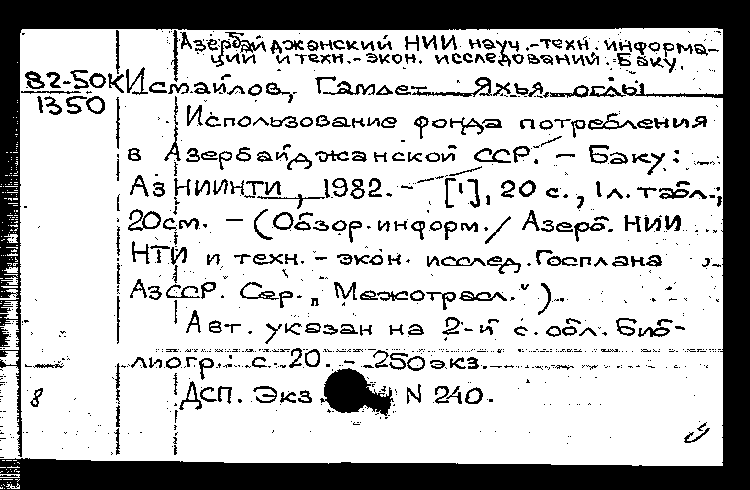 Азербайджанский НИИ науч.-техн. информа-
ции и техн.-экон. исследований. Баку.
82-50К
1350
Исмайлов, Гамлет Яхья оглы
Использование фонда потребления
в Азербайджанской ССР. - Баку:
АзНИИНТИ, 1982. - [1], 20 с., 1 л. табл.;
20см. - (Обзор. информ. / Азерб. НИИ
НТИ и техн. - экон. исслед. Госплана
АзССР. Сер. „Межотрасл.").
Авт. указан на 2-й с. обл. Биб-
лиогр.: с. 20. - 250 экз.
8 ДСП. Экз N 240.